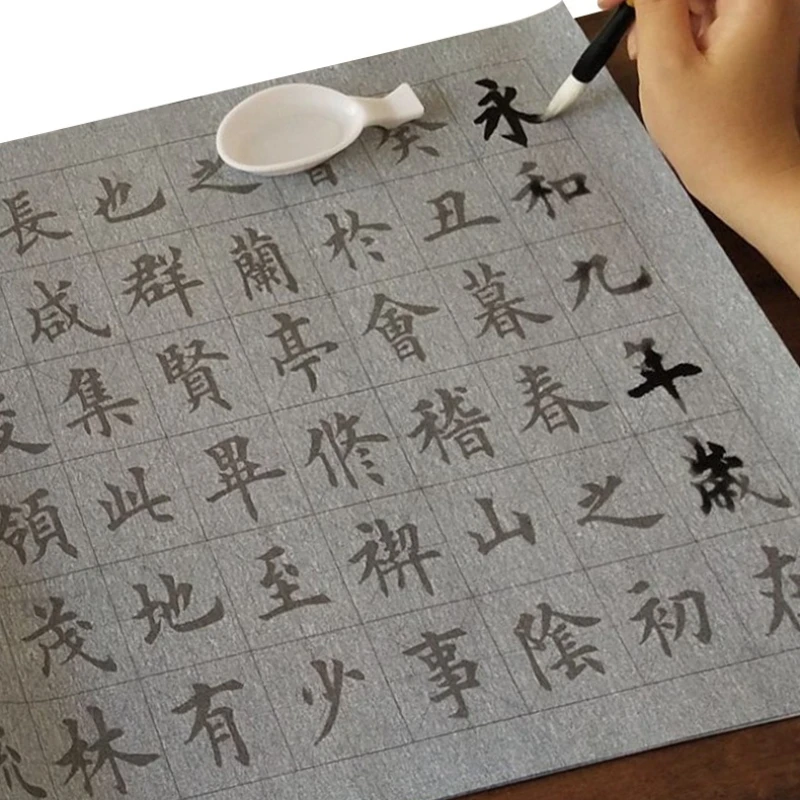 永和九年歲在
癸丑暮春之初
於會稽山陰
之蘭亭修禊事
也群賢畢至少
長咸集此地有
領茂林